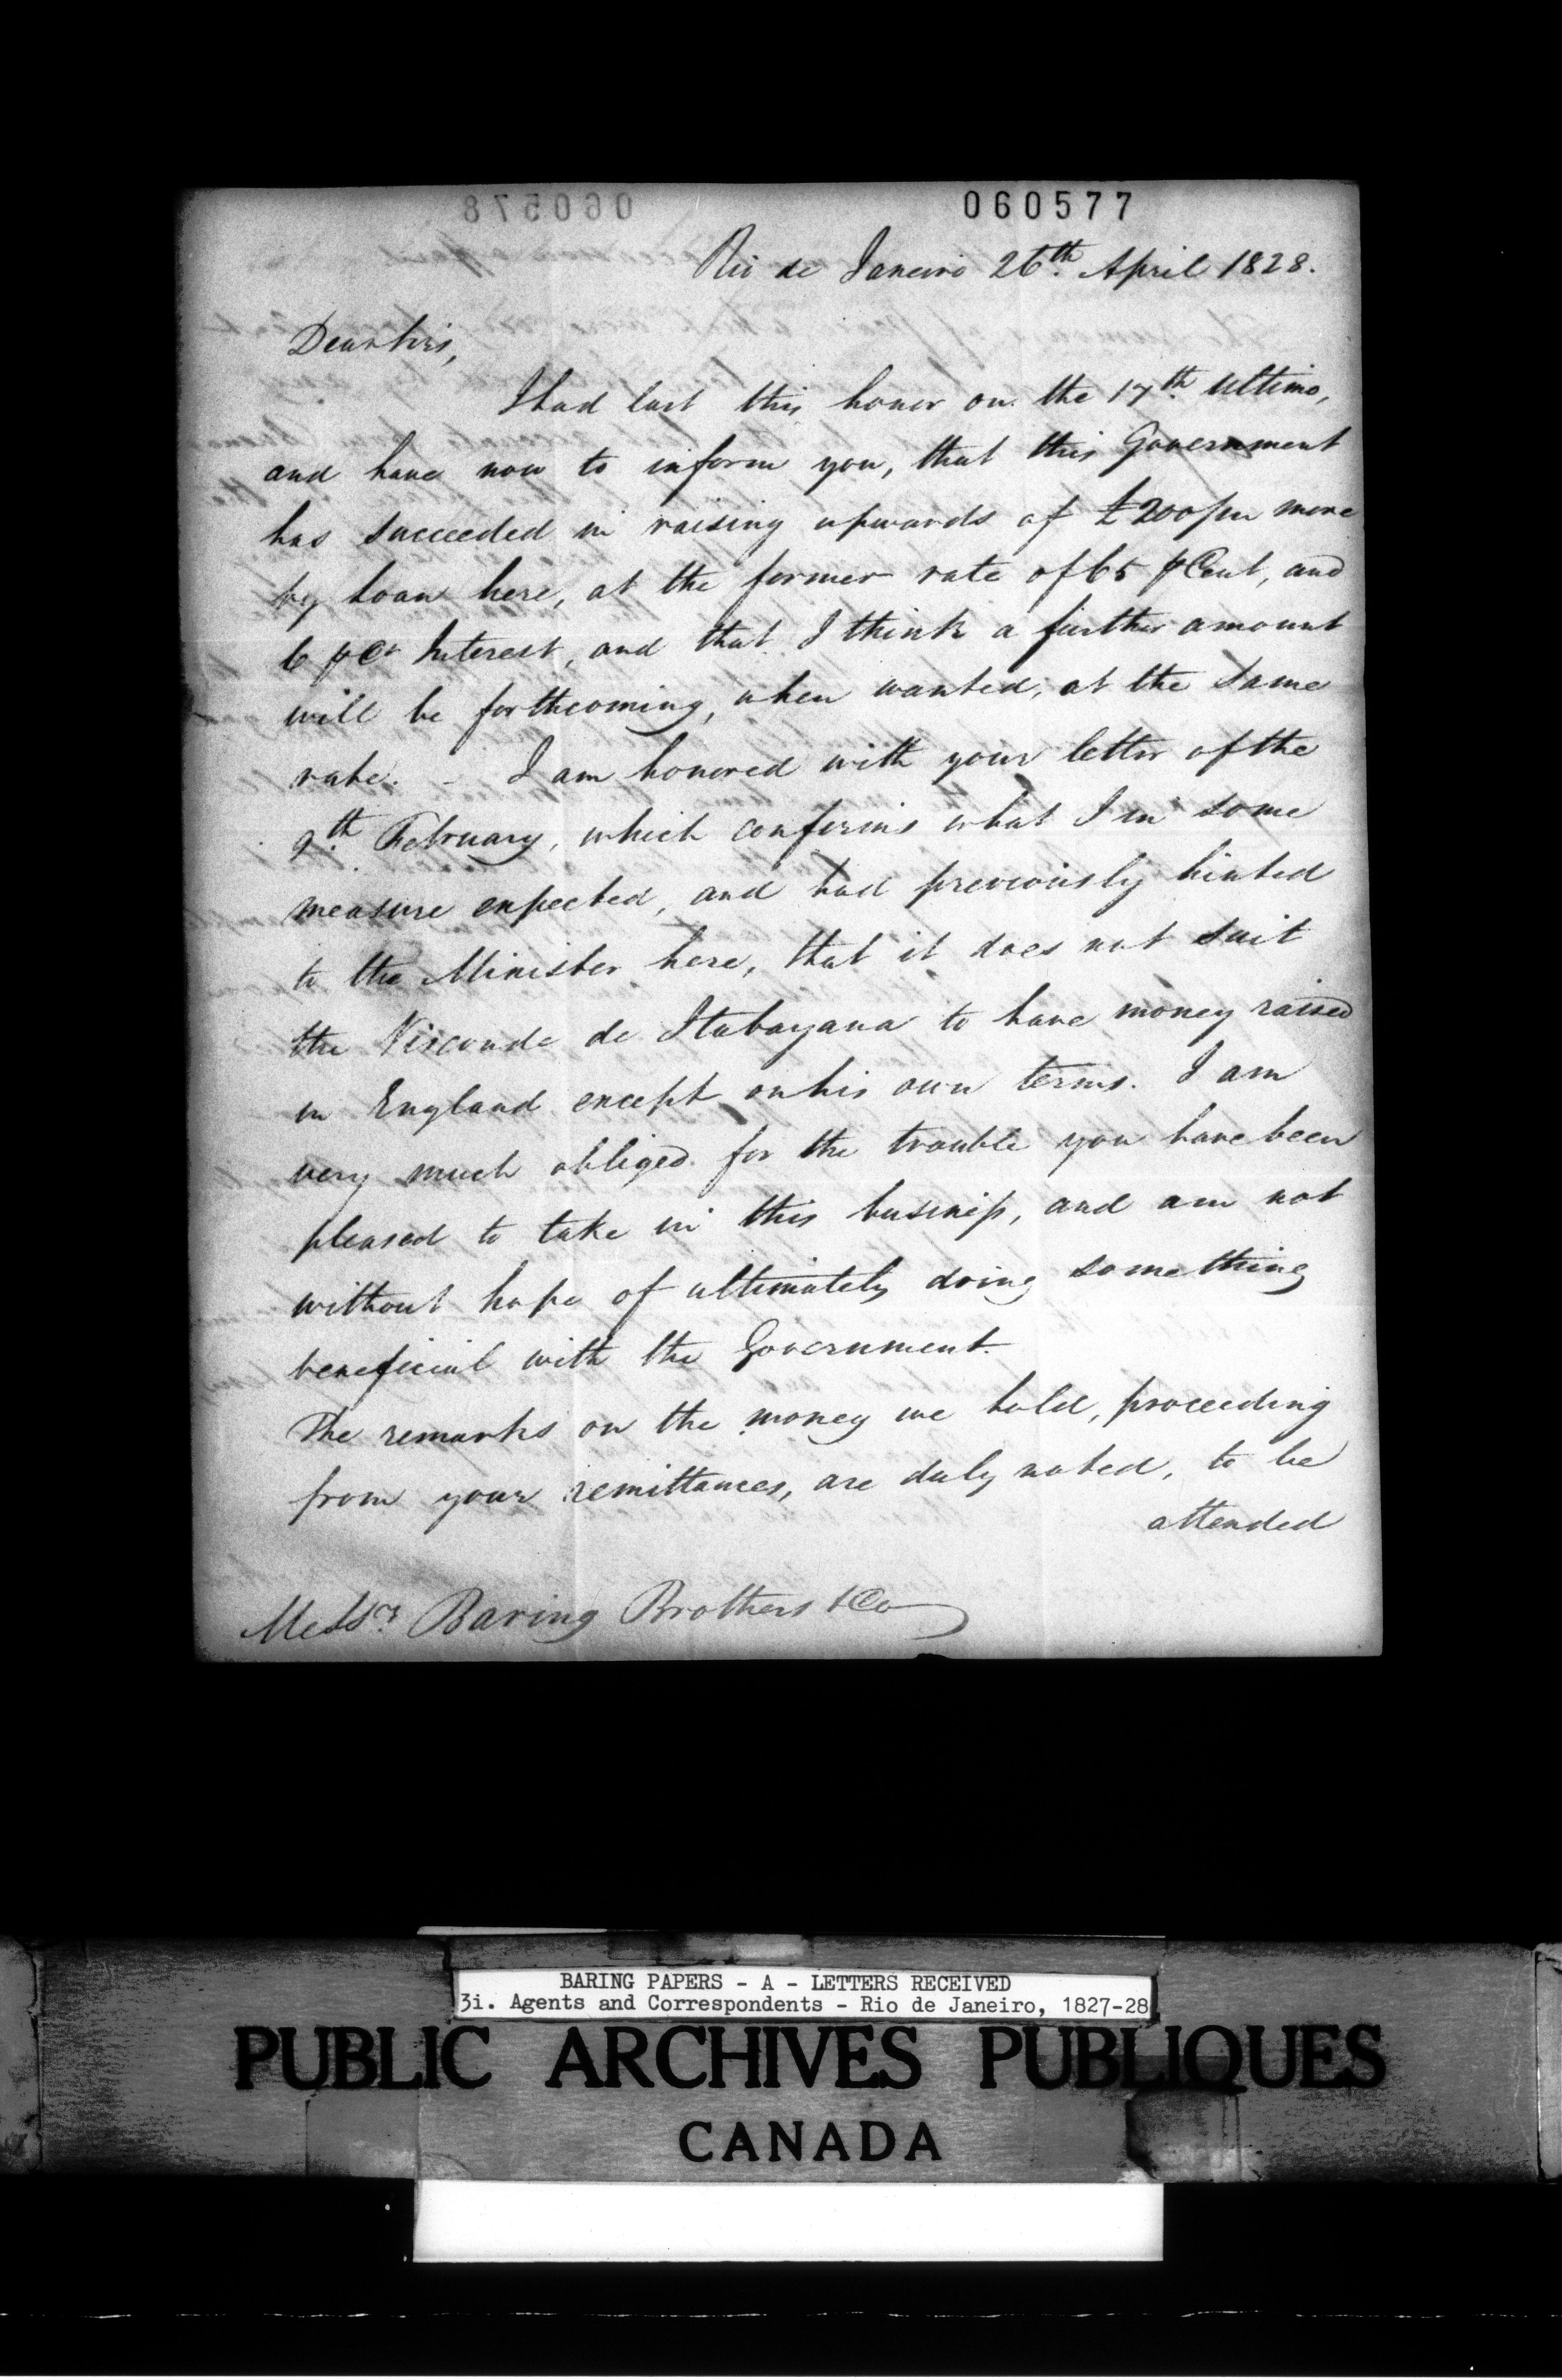 060577
Rio de Janeiro 26th. April 1828.
Dear Sirs,
I had last this honor on the 17th. Ultimo,
and have now to inform you, that this Government
has succeeded in raising upwards of £200/m more
by loan here, at the former rate of 65 p Cent, and
6 p Ct Interest, and that I think a further amount
will be forthcoming, when wanted, at the same
rate. - I am honored with your letter of the
9th. February, which confirms what I in some
measure expected, and had previously hinted
to the Minister here, that it does not suit
the Visconde de Itabayana to have money raised
in England except on his own terms. I am
very much obliged for the trouble you have been
pleased to take in this business, and am not
without hope of ultimately doing something
beneficial with the Government.
The remarks on the money we hold, proceeding
from your remittances, are duly noted, to be
attended
Messrs. Baring Brothers & Co
BARING PAPERS - A - LETTERS RECEIVED
3i. Agents and Correspondents - Rio de Janeiro, 1827-28
PUBLIC ARCHIVES PUBLIQUES
CANADA